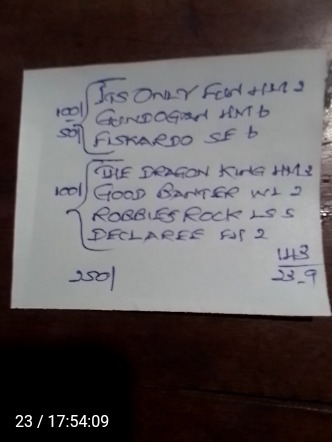 ITS ONLY FUN HM 2
100/ GUNDOGAN HM 6
50/ FISKARDO SF 6
THE DRAGON KING HM 2
100/ GOOD BANTER WL 2
ROBBIES ROCK LS 5
DECLAREE 2
143
250/ 23_9
23 / 17:54:09